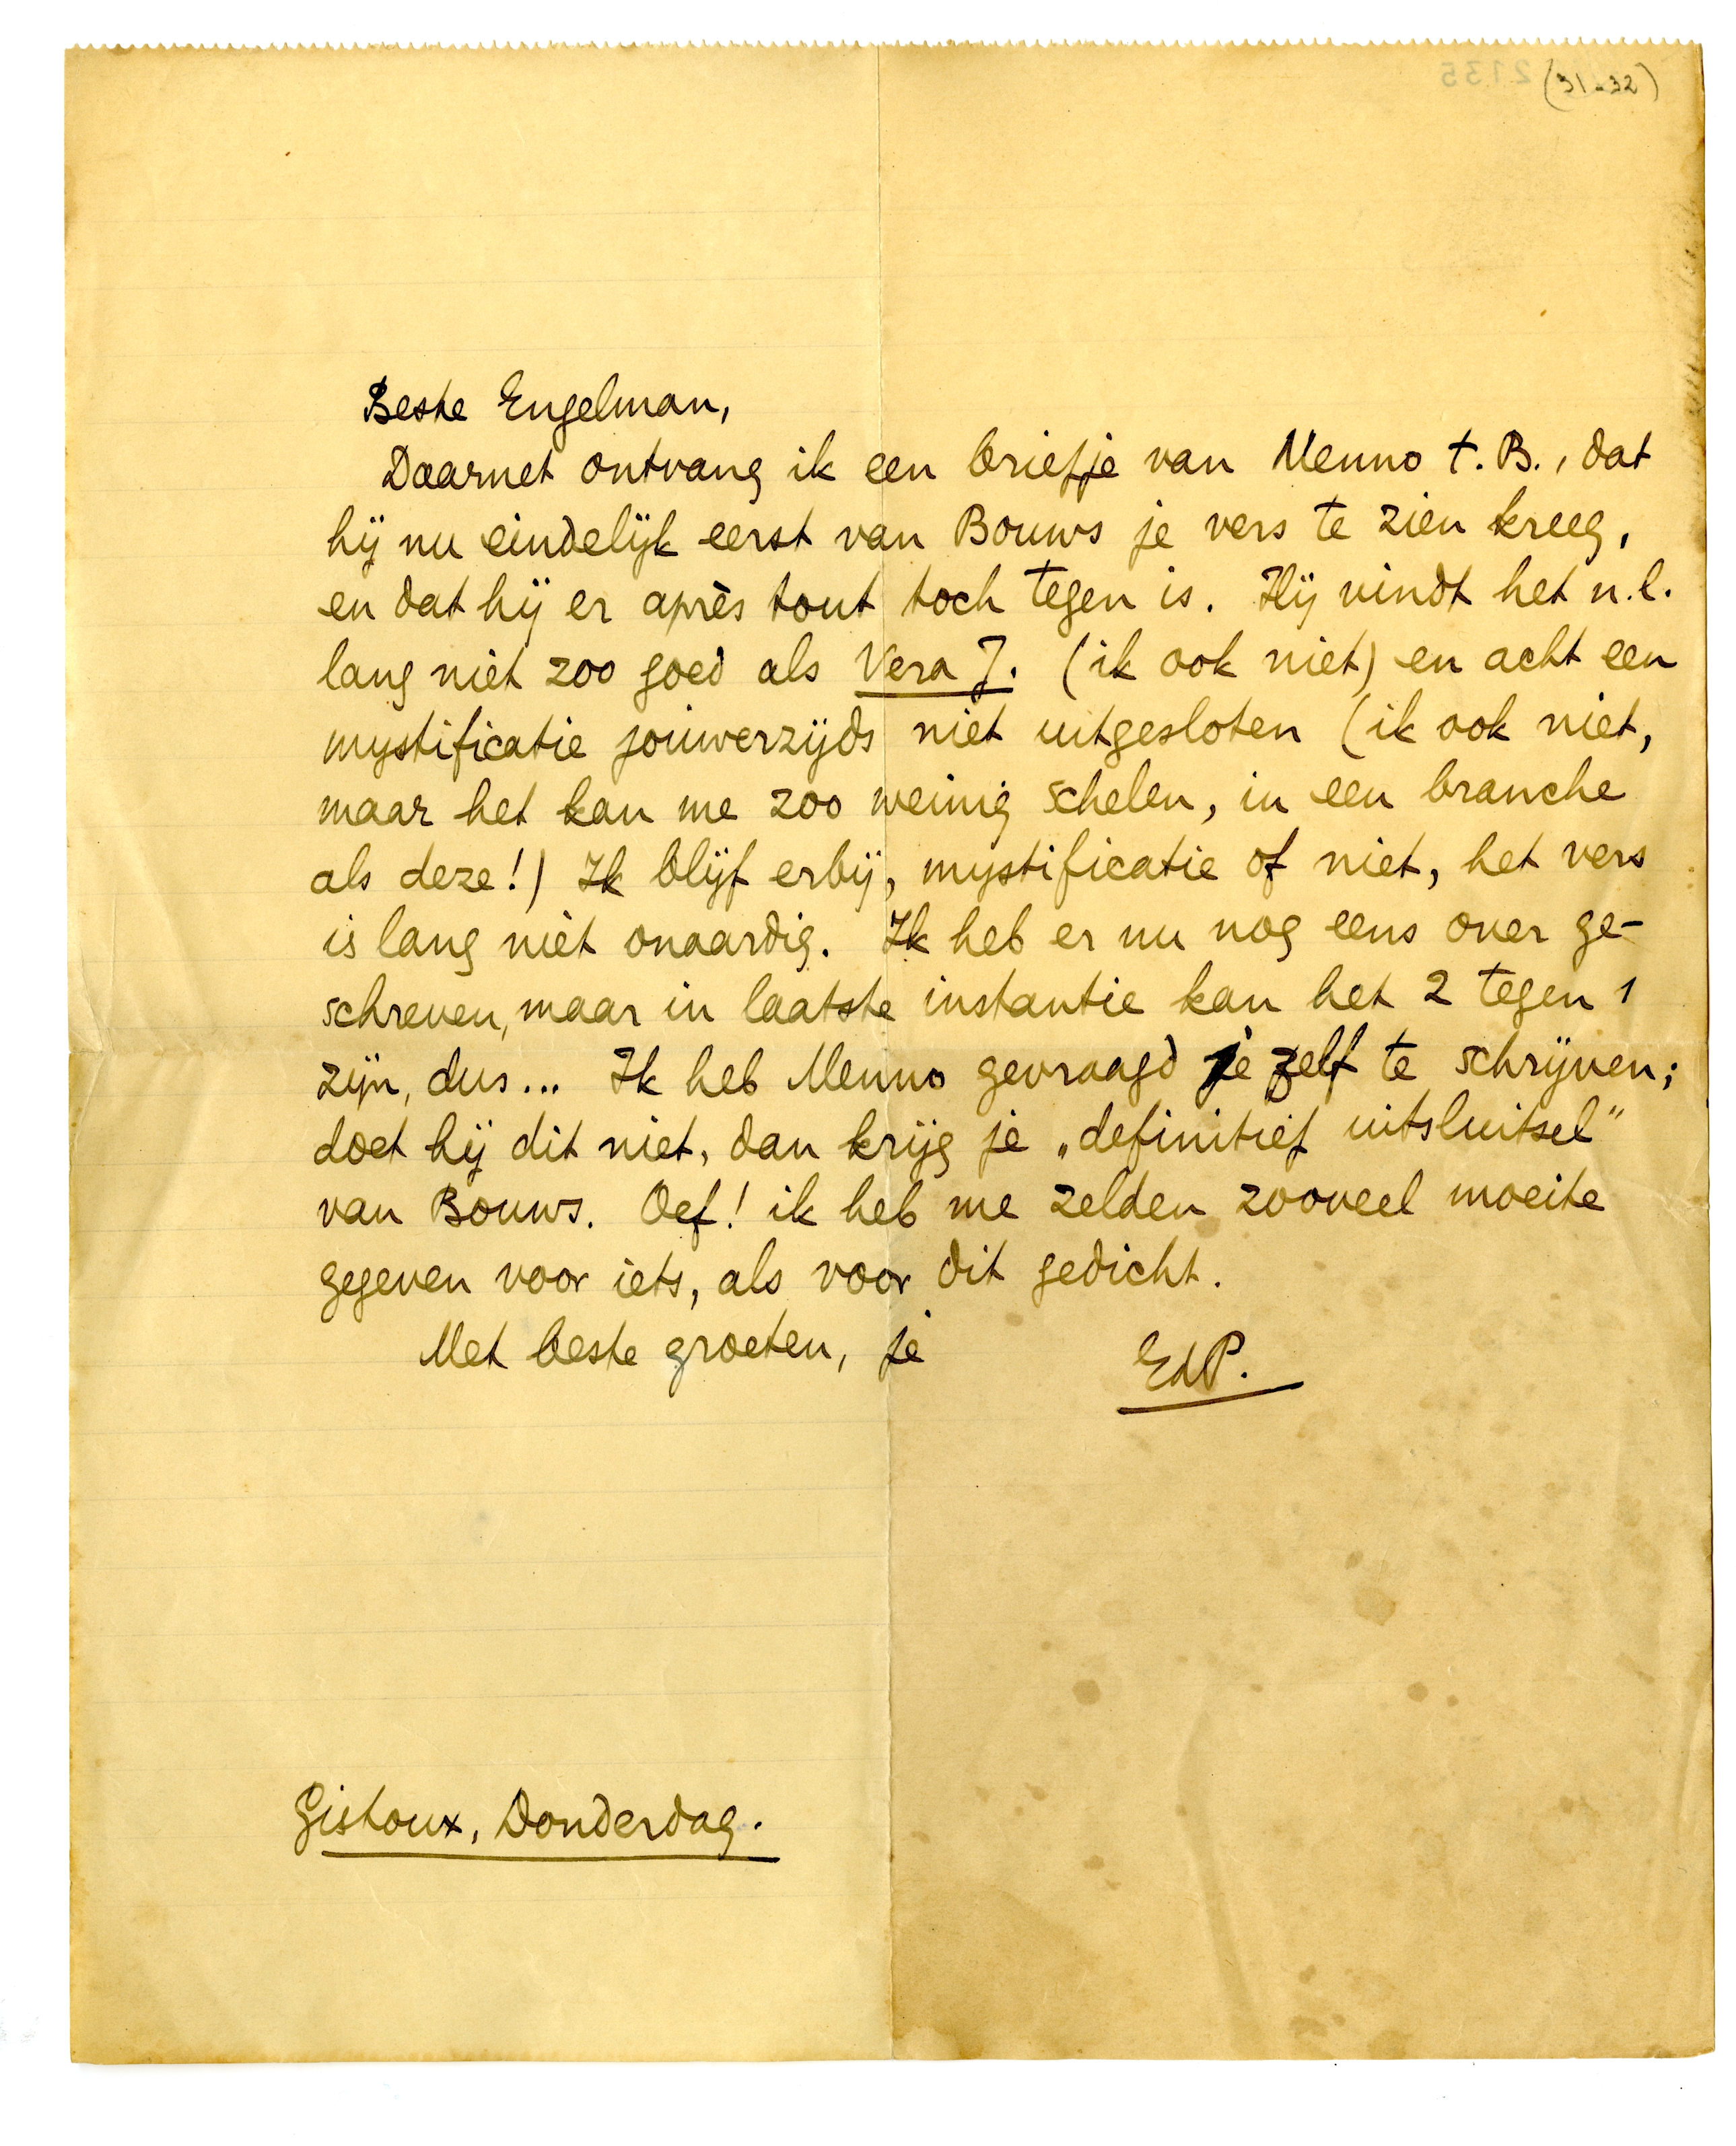 (31-32)
2135
Beste Engelman,
Daarnet ontvang ik een briefje van Menno t. B., dat
hij nu eindelijk eerst van Bouws je vers te zien kreeg,
en dat hij er après tout toch tegen is. Hij vindt het n.l.
lang niet zoo goed als Vera J. (ik ook niet) en acht een
mystificatie jouwerzijds niet uitgesloten (ik ook niet,
maar het kan me zoo weinig schelen, in een branche
als deze!) Ik blijf erbij, mystificatie of niet, het vers
is lang niet onaardig. Ik heb er nu nog eens over ge-
schreven, maar in laatste instantie kan het 2 tegen 1
zijn, dus... Ik heb Menno gevraagd je zelf te schrijven;
doet hij dit niet, dan krijg je „definitief uitsluitsel"
van Bouws. Oef! ik heb me zelden zooveel moeite
gegeven voor iets, als voor dit gedicht.
Met beste groeten, je
EdP.
Gistoux, Donderdag.